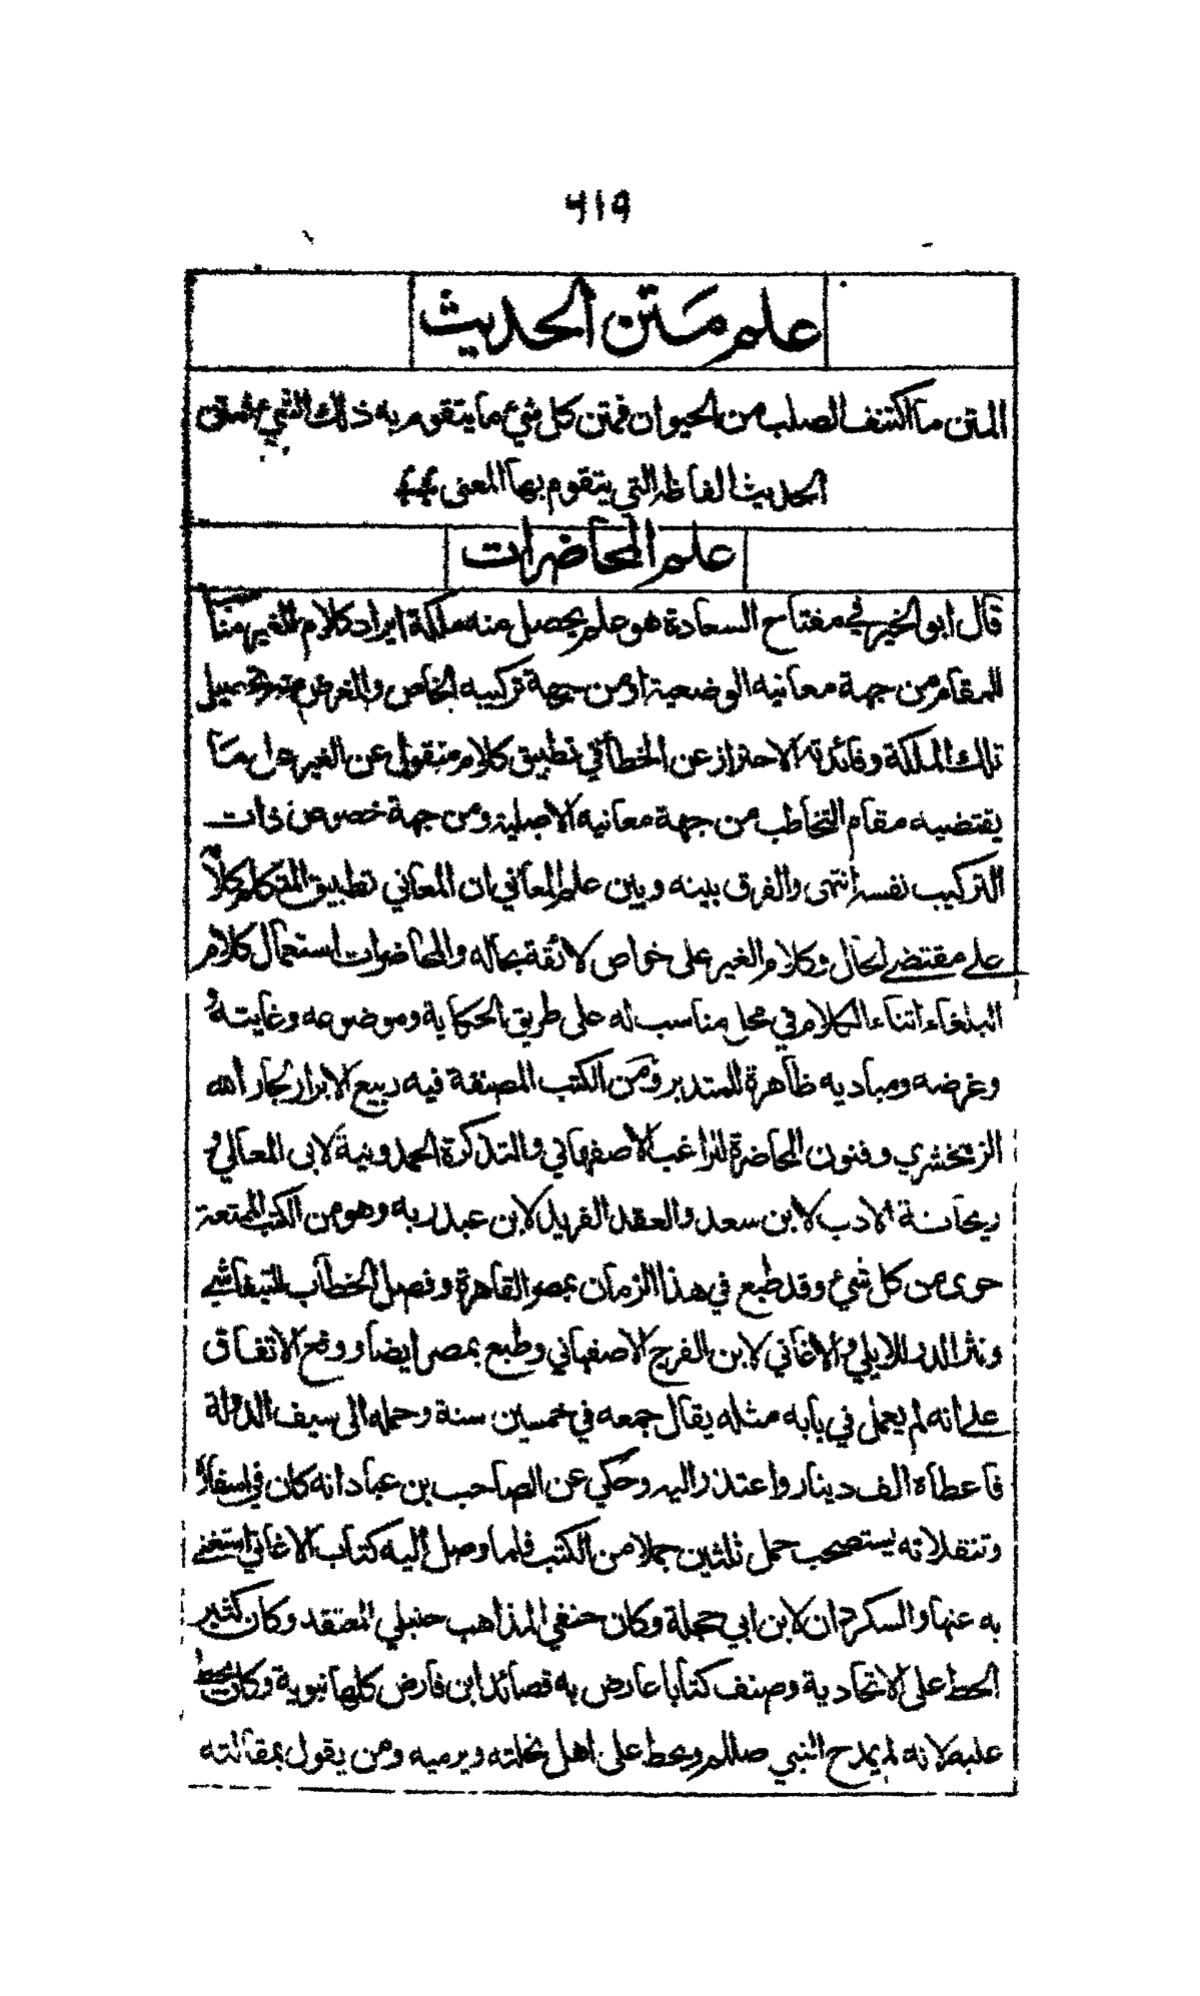 ٦١٩
علم متن الحديث
المتن ما اكتنف الصلب من الحيوان فمتن كل شيء ما يتقوم به ذلك الشيء فمتن
الحديث الفاظه التي يتقوم بها المعنى
علم المحاضرات
قال ابو الخير في مفتاح السعادة هو علم يحصل منه ملكة ايراد كلام للغير مناسب
للمقام من جهة معانيه الوضعية او من جهة تركيبه الخاص والغرض منه تحصيل
تلك الملكة وفائدته الاحتراز عن الخطأ في تطبيق كلام منقول عن الغير على ما
يقتضيه مقام التخاطب من جهة معانيه الاصلية ومن جهة خصوص ذات
التركيب نفسه انتهى والفرق بينه وبين علم المعاني ان المعاني تطبيق المتكلم كلامه
على مقتضى الحال وكلام الغير على خواص لائقة بحاله والمحاضرات استعمال كلام
البلغاء اثناء الكلام في محل مناسب له على طريق الحكاية وموضوعه وغايته و
وغرضه ومباديه ظاهرة للمتدبر ومن الكتب المصنفة فيه ربيع الابرار لجار الله
الزمخشري وفنون المحاضرة للراغب الاصفهاني والتذكرة الحمدونية لابى المعالي و
ريحانة الادب لابن سعد والعقد الفريد لابن عبد ربه وهو من الكتب الممتعة
حوى من كل شيء وقد طبع في هذا الزمان بمصر القاهرة وفصل الخطاب للتيفاشي
ونثر الدر للابي والاغاني لابن الفرج الاصفهاني وطبع بمصر ايضا ووقع الاتفاق
على انه لم يعمل في بابه مثله يقال جمعه في خمسين سنة وحمله الى سيف الدولة
فاعطاه الف دينار واعتذر اليه وحكي عن الصاحب بن عباد انه كان في اسفاره
وتنقلاته يستصحب حمل ثلثين جملا من الكتب فلما وصل إليه كتاب الاغاني استغنى
به عنها والسكردان لابن ابي حجلة وكان حنفي المذاهب حنبلي المعتقد وكان كثير
الحط على الاتحادية وصنف كتابا عارض به قصائد ابن فارض كلها نبوية وكان يحط
عليه لانه لم يمدح النبي صللم ويحط على اهل نحلته ويرميه ومن يقول بمقالته